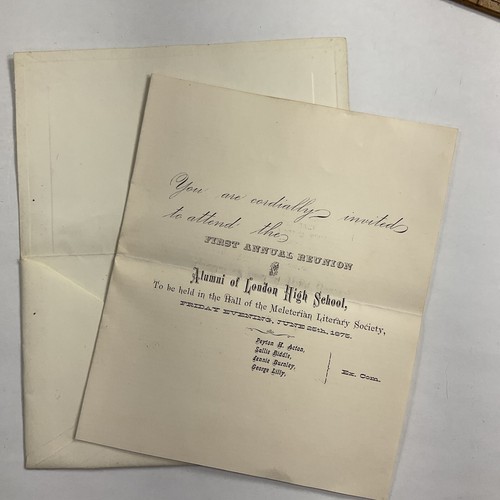 You are cordially invited
to attend the
FIRST ANNUAL REUNION
OF
Alumni of London High School,
To be held in the Hall of the Meleterian Literary Society,
FRIDAY EVENING, JUNE 25th, 1875.
Peyton H. Acton,
Sallie Riddle,
Jennie Burnley,
George Lilly,
Ex. Com.